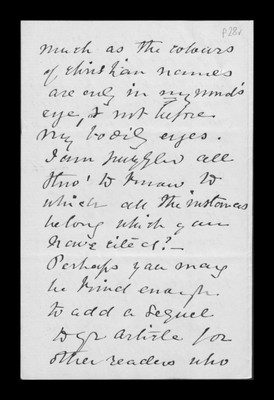 p28v
much as the colours
of christian names
are only in my mind's
eye, & not before
my bodily eyes.
I am puzzled all
thro' to know to
which all the instances
belong which you
have cited? _
Perhaps you may
be kind enough
to add a sequel
to yr article for
other readers who